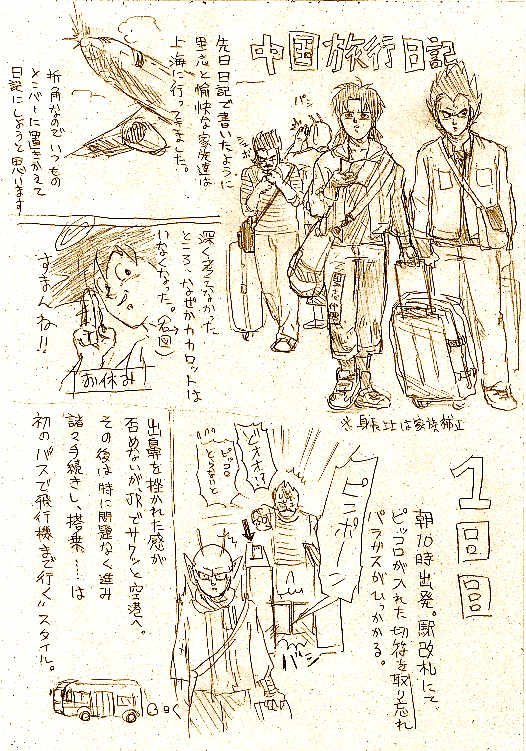 中国旅行日記
先日日記で書いたように
里志と愉快な家族達は
上海に行ってきました。
折角なので いつもの
メンバーに置きかえて
日記にしようと思います
パシ
深く考えなかった
ところ、なぜかカカロットは
いなくなった。(右図)
すまんね!!
お休み
※身長比は家族補正
1回目
朝10時出発。駅改札にて
ピッコロが入れた切符を取り忘れ
パラガスがひっかかる。
ピンポーン
ピッコロ
とらないと
バン
出鼻を挫かれた感が
否めないがJRでサクッと空港へ。
その後は特に問題なく進み
諸々手続きし、搭乗……は
初のバスで飛行機まで行くスタイル。